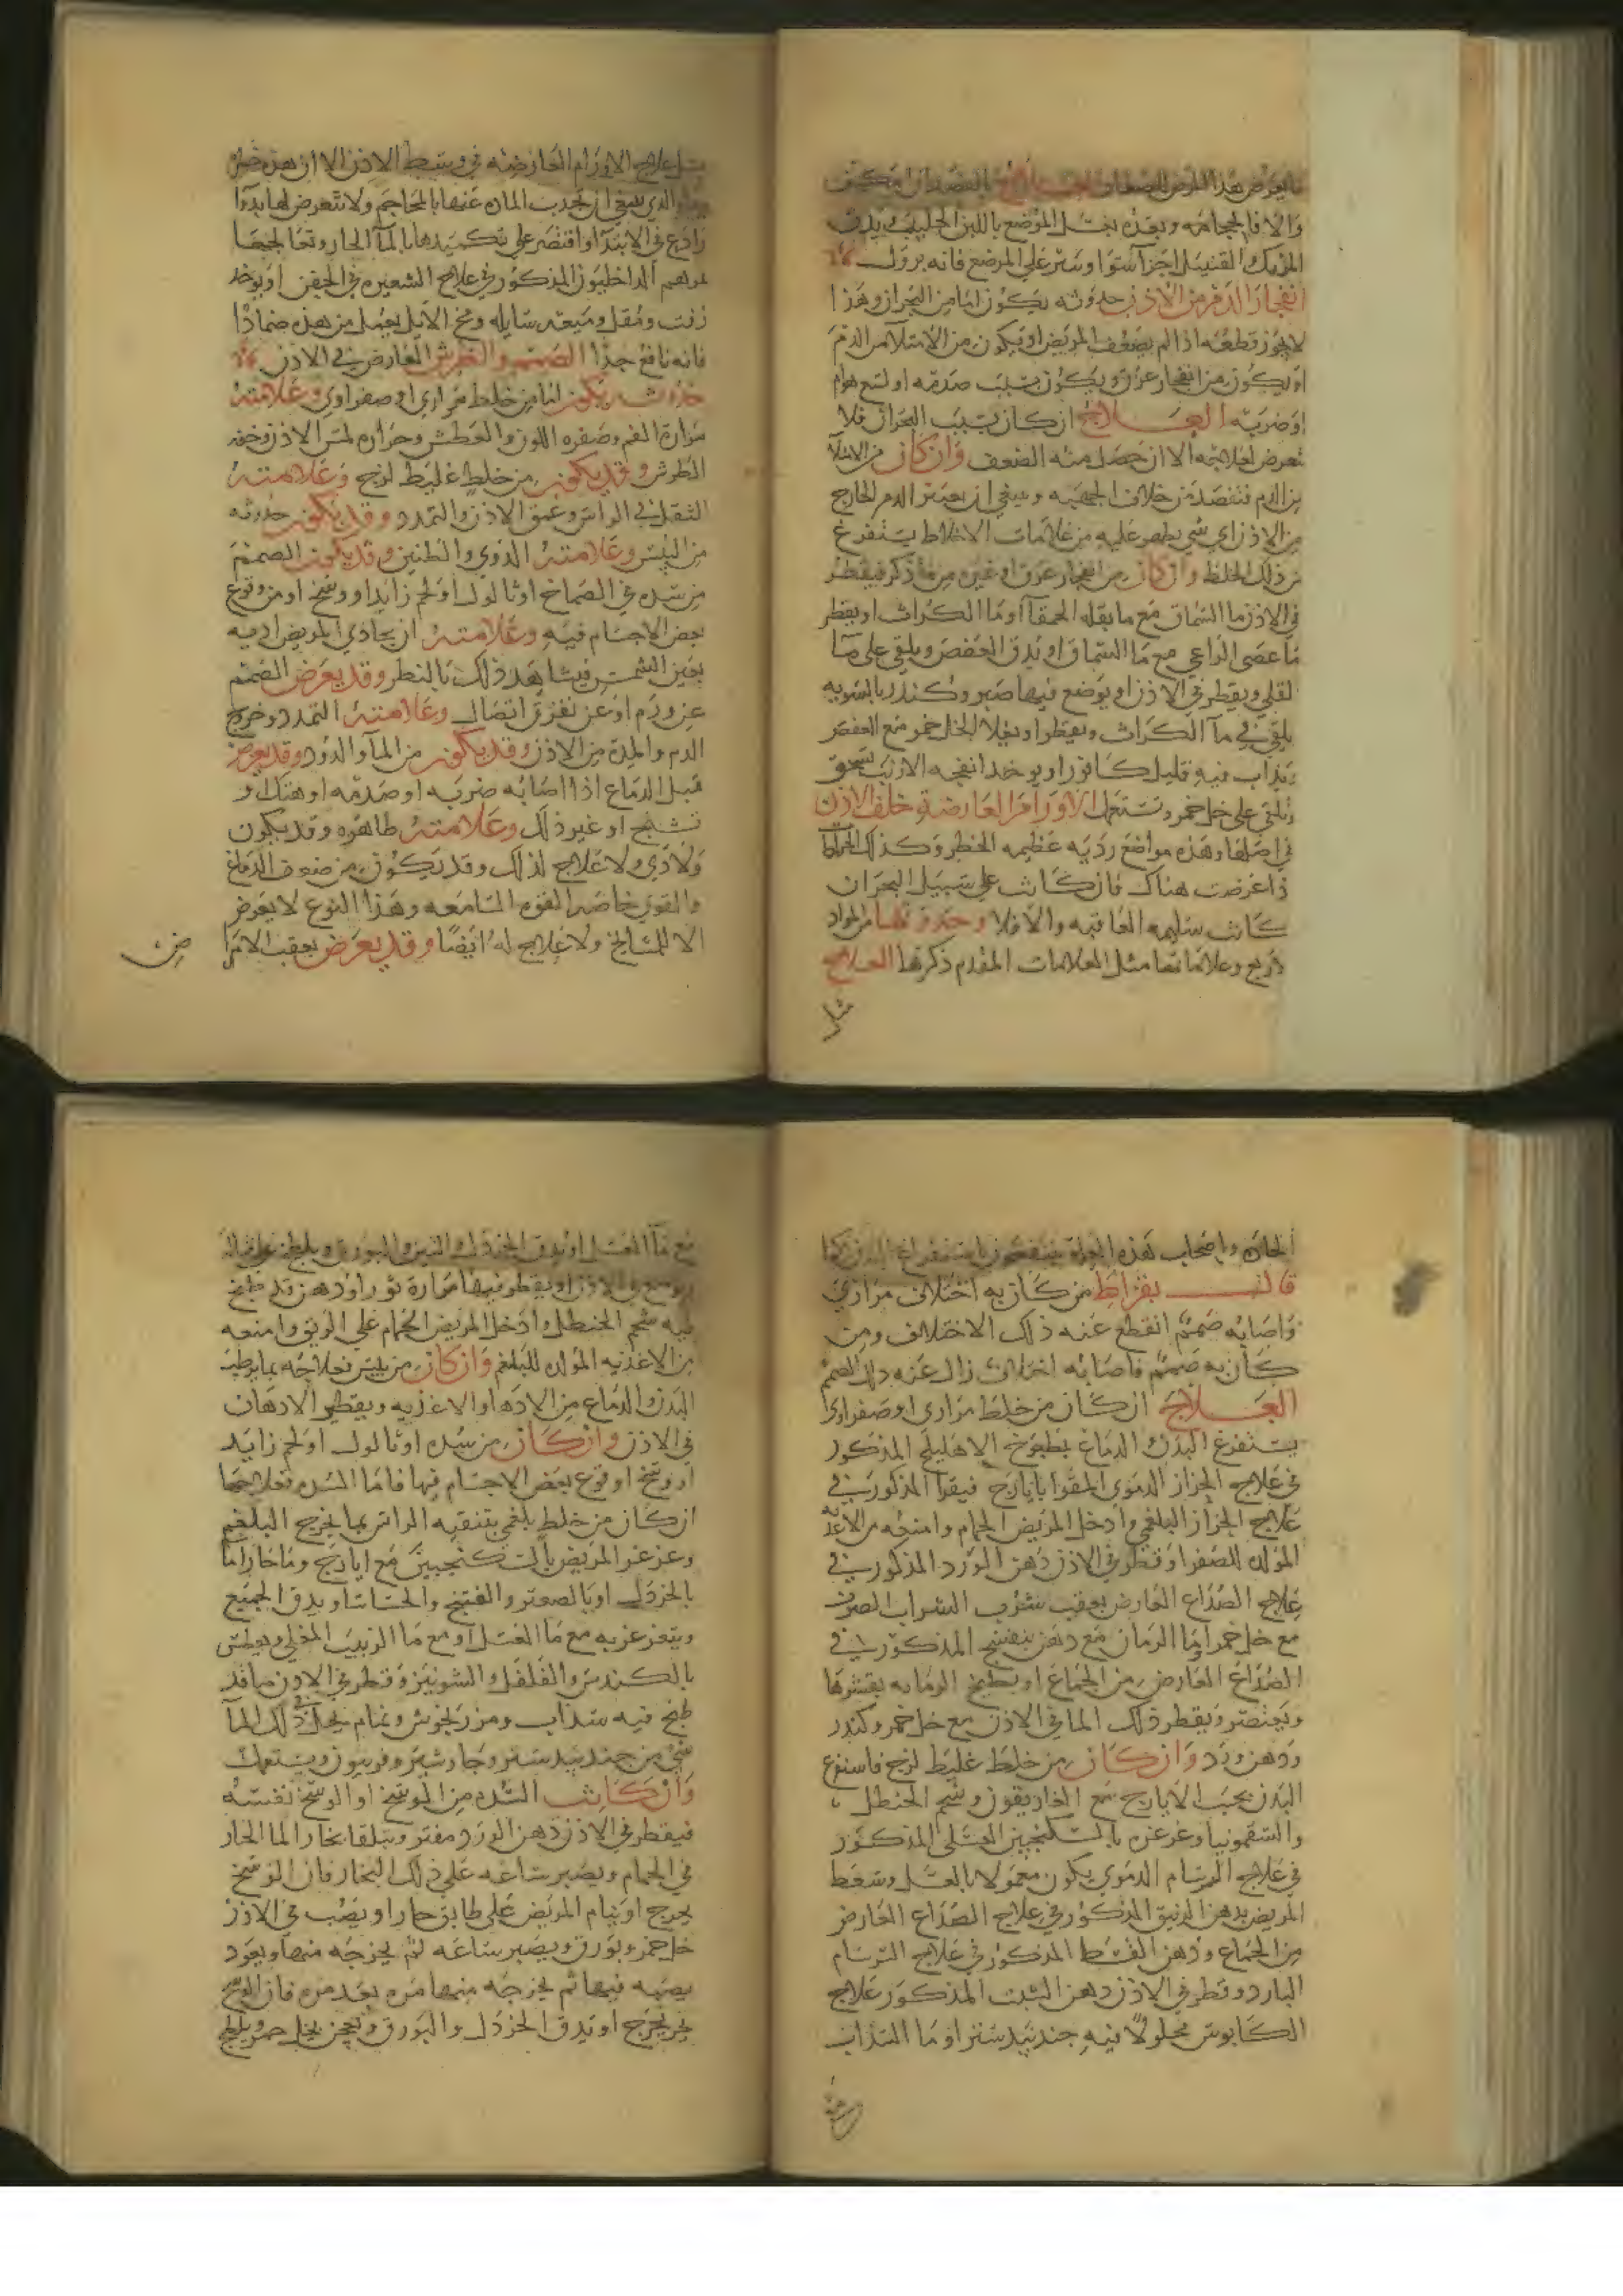 ما يعرض هذا المرض للصغار العلاج بالفصد ان امكن
والا فالحجامه وبعده يغسل الموضع باللبن الحليب ويدق
المرتك القنبيل اجزآ سوا وينثر على الموضع فانه يزول
انفجار الدم من الاذن حدوثه يكون اما من البحران وهذا
لا يجوز قطعه اذا لم يضعف المريض او يكون من الامتلا من الدم
او يكون من انفجار عرق ويكون بسبب صدمه او لسع هوام
او ضربه العلاج ان كان بسبب البحران فلا
تعرض لعلاجه الا ان حصل منه الضعف وان كان من الامتلآ
من الدم فتفصد من خلاف الجهه وينبغي ان يعتبر الدم الخارج
من الاذن اي شي يظهر عليه من علامات الاخلاط يستفرغ
من ذلك الخلط وان كان من انفجار عرق او غيره مما ذكر فيقطر
في الاذن ما السماق مع ما بقله الحمقآ او ما الكراث او يقطر
ما عصى الراعي مع ما السماق او يدق العفص ويلقي على مآ
لقلي ويقطر في الاذن او يوضع فيها صبر وكندر بالسويه
يلقي في مآ الكراث ويقطر او يغلا الخل خمر مع العفص
يذاب فيه قليل كافور او يوخذ انفحه الارنب تسحق
وتلقي على خل خمر وتستعمل الاورام العارضة خلف الاذن
في اصلها وهذه مواضع رديه عظيمه الخطر وكذلك الجراحات
اذا عرضت هناك فان كانت على سبيل البحران
كانت سليمه العاقبه والا فلا وحدوثها من المواد
الاربع وعلاماتها مثل العلامات المقدم ذكرها العلاج
مثل
مثل علاج الاورام العارضه في وسط الاذن الا ان هذه
الذي ينبغي ان تجذب الماده عنها بالمحاجم ولا تتعرض لها بدوآ
رادع في الابتدآ او اقتصر على تكميدها بالمآ الحار وتعالجها
بمرهم الداخليون المذكور في علاج الشعيره في الجفن او يوخذ
زفت ومقل وميعه سايله ومخ الايل يعمل من هذه ضمادًا
فانه نافع جدًا الصمم والطرش العارض في الاذن
حدوثه يكون اما من خلط مراري او صفراوي وعلامته
مرارة الفم وصفره اللون والعطش وحراره لمس الاذن وخفه
الطرش وقد يكون من خلط غليظ لزج وعلامته
الثقل في الراس وعمق الاذن والتمدد وقد يكون حدوثه
من اليبس وعلامته الدوي والطنين وقد يكون الصمم
من سده في الصماخ او ثالول او لحم زايد او وسخ او من وقوع
بعض الاجسام فيه وعلامته ان يحاذي المريض اذنه
بعين الشمس فيشاهد ذلك بالنظر وقد يعرض الصمم
عن ورم او عن تفرق اتصال وعلامته التمدد وخروج
الدم والمدة من الاذن وقد يكون من المآ والدود وقد يعرض
قبل الدماغ اذا اصابه ضربه او صدمه او هتك او
تشنج او غير ذلك وعلامته ظاهره وقد يكون
ولادي ولا علاج لذلك وقد يكون من ضعف الدماغ
والقوي خاصه القوه السامعه وهذا النوع لا يعرض
الا للمشايخ ولا علاج له ايضًا وقد يعرض بعقب الامراض
الحاده واصحاب هذه العله ينتفعون باستفراغ البدن كما
قال بقراط من كان به اختلاف مراري
واصابه صمم انقطع عنه ذلك الاختلاف ومن
كان به صمم فاصابه اختلاف زال عنه ذلك الصمم
العلاج ان كان من خلط مراري او صفراوي
يستفرغ البدن الدماغ بطبوخ الاهليلج المذكور
في علاج الحزاز الدموي المقوا بايارج فيقرآ المذكور في
علاج الحزاز البلغمي وادخل المريض الحمام وامنعه من الاغذيه
المولده للصفرا وقطر في الاذن دهن الورد المذكور في
علاج الصداع العارض بعقب شرب الشراب الصرف
مع خل خمر او ما الرمان مع دهن بنفسج المذكور في
الصداع العارض من الجماع او يطبخ الرمانه بقشرها
ويعتصر ويقطر ذلك الما في الاذن مع خل خمر وكندر
ودهن ورد وان كان من خلط غليظ لزج فاستفرغ
البدن بحب الايارج مع الغاريقون وشحم الحنطل
والسقمونيا وغرغره بالسكنجبين العسلي المذكور
في علاج البرسام الدموي يكون معمولا بالعسل وسعط
المريض بدهن الزنبق المذكور في علاج الصداع العارض
من الجماع ودهن القسط المذكور في علاج السرسام
البارد وقطر في الاذن دهن الشبت المذكور علاج
الكابوس محلولاً فيه جندبيدستر او ما السذاب
مع مآ العسل او يدق الخردل والتين والبورق ويلطخ على
ويوضع في الاذن او يقطر فيها مرارة ثور او دهن قد طبخ
فيه شحم الحنطل وادخل المريض الحمام على الريق وامنعه
من الاغذيه المولده للبلغم وان كان من يبس فعلاجه بما يرطب
البدن والدماغ من الادهان والاغذيه ويقطر الادهان
في الاذن وان كان من سده او ثالول او لحم زايد
او وسخ او وقوع بعض الاجسام فيها فاما السده فعلاجها
ان كان من خلط بلغمي بتنقيه الراس بما يخرج البلغم
وغرغر المريض بالسكنجبين مع ايارج وما حار اما
بالخردل او بالصعتر والحاشا او يدق الجميع
ويتغرغر به مع ما العسل او مع ما الزبيب المغلي ويعطس
بالكندس والفلفل والشونيز وقطر في الاذن ما قد
طبخ فيه سذاب ومرزنجوش ونمام يحل في ذلك المآ
شي من جندبيدستر وجاوشير وفربيون ويستعمل
وان كانت السده من الوسخ او الوسخ نفسه
فيقطر في الاذن دهن الورد مفتر ويتلقا بخار الما الحار
في الحمام ويصبر ساعه على ذلك البخار فان الوسخ
يخرج او ينام المريض على طابق حار او يصب في الاذن
خل خمر وبورق ويصبر ساعه ثم يخرجه منها ويعود
يصبه فيها ثم يخرجه منها مره بعد مره فان الوسخ
يخرج او يدق الخردل والبورق ويعجن بخل خمر ويلطخ